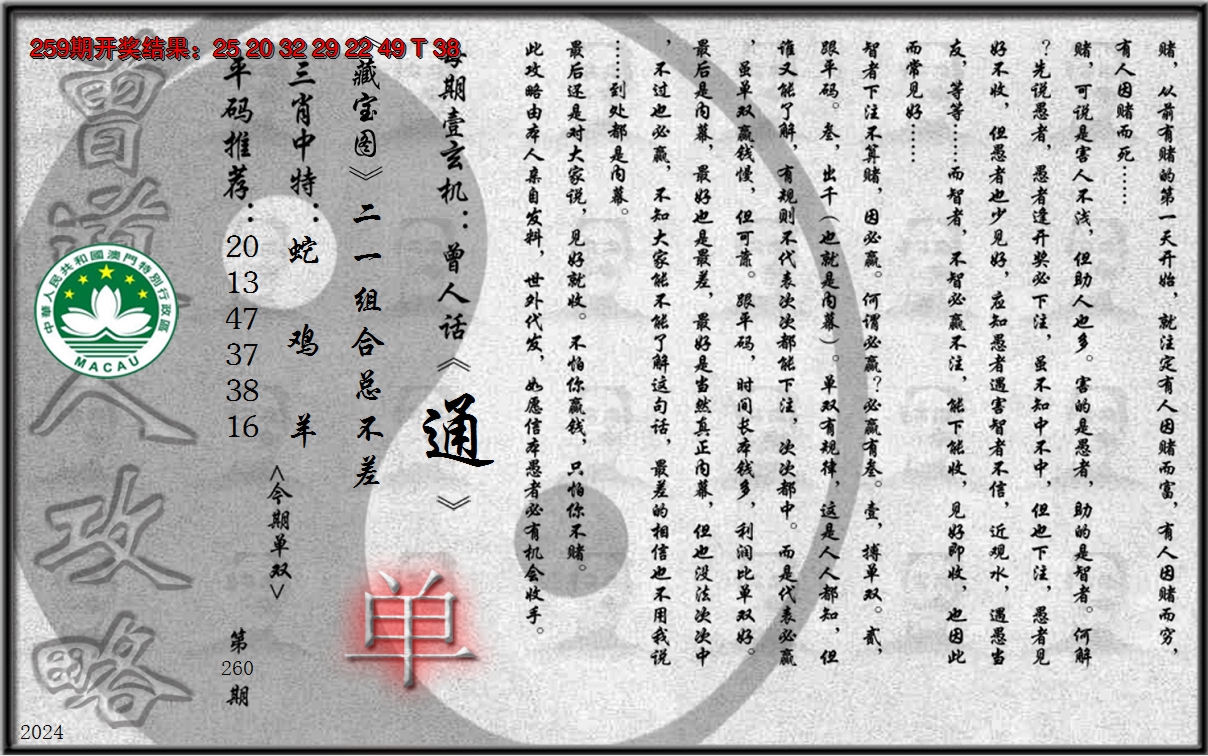 259期开奖结果：25 20 32 29 22 49 T 38
赌，从前有赌的第一天开始，就注定有人因赌而富，有人因赌而穷，
有人因赌而死……
赌，可说是害人不浅，但助人也多。害的是愚者，助的是智者。何解
？先说愚者，愚者逢开奖必下注，虽不知中不中，但也下注，愚者见
好不收，但愚者也少见好，应知愚者遇害智者不信，近观水，遇愚当
友，等等……而智者，不智必赢不注，能下能收，见好即收，也因此
而常见好……
智者下注不算赌，因必赢。何谓必赢？必赢有叁。壹，搏单双。贰，
跟平码。叁，出千（也就是内幕）。单双有规律，这是人人都知，但
谁又能了解，有规则不代表次次都能下注，次次都中。而是代表必赢
，虽单双赢钱慢，但可靠。跟平码，时间长本钱多，利润比单双好。
最后是内幕，最好也是最差，最好是当然真正内幕，但也没法次次中
，不过也必赢，不知大家能不能了解这句话，最差的相信也不用我说
……到处都是内幕。
最后还是对大家说，见好就收。不怕你赢钱，只怕你不赌。
此攻略由本人亲自发料，世外代发，如愿信本愚者必有机会收手。
每期壹玄机：曾人话《通》
《藏宝图》二一组合总不差
单
三肖中特：蛇 鸡 羊
<今期单双>
平码推荐：20 13 47 37 38 16
第260期
曾道人攻略
中華人民共和國澳門特別行政區
MACAU
2024